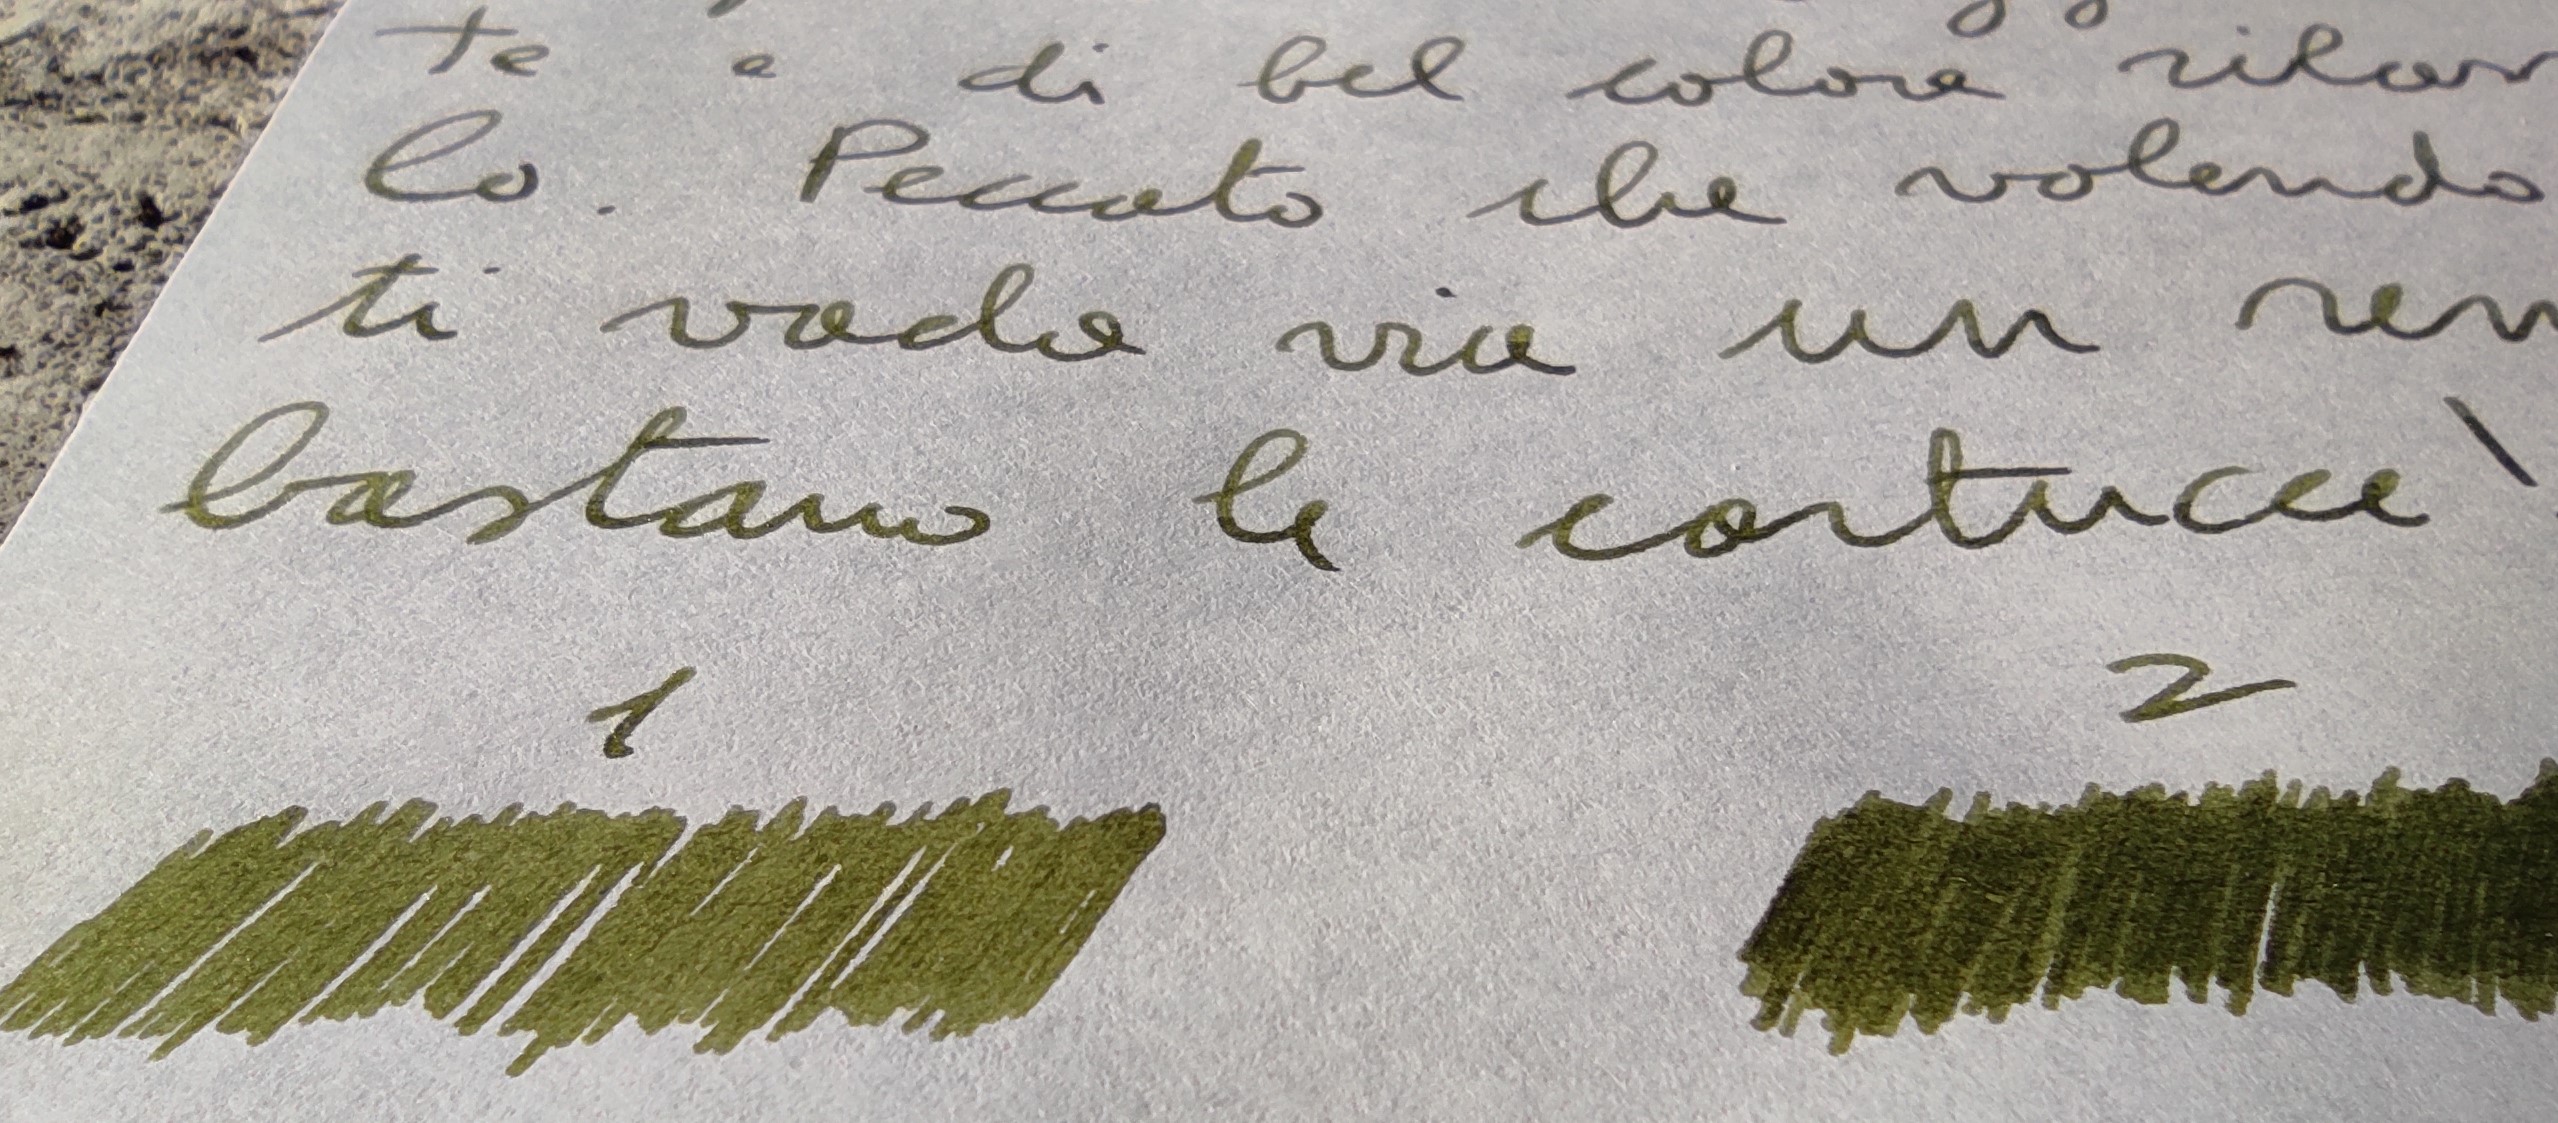 te e di bel colore
lo. Peccato che volendo
ti vada via un ren
bastano le cartucce
1 2